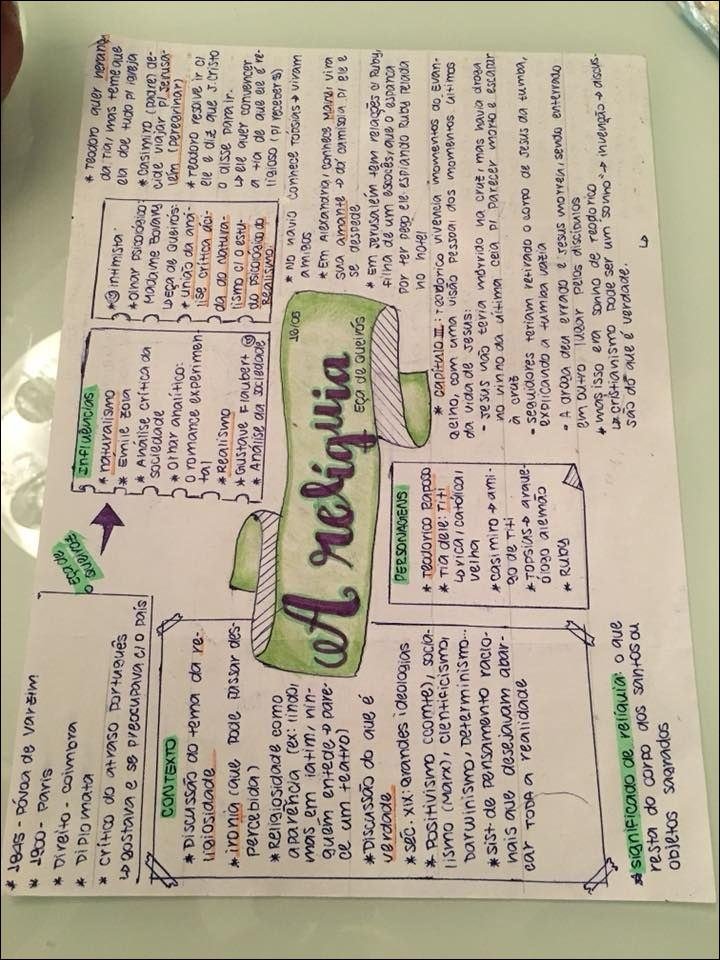 * 1845 - Póvoa de Varzim
* 1900 - Paris
* Direito - Coimbra
* Diplomata
* crítico do atraso português
↳ gostava e se preocupava c/ o país
Eça de
Queiroz
CONTEXTO
* Discussão do tema da re-
ligiosidade
* ironia (que pode passar des-
percebida)
* Religiosidade como
aparência (ex: lindo,
mas em latim, nin-
guém entende → pare-
ce um teatro)
* Discussão do que é
verdade
* séc. XIX: grandes ideologias
* Positivismo (Comte), socia-
lismo (Marx), cientificismo,
Darwinismo, Determinismo...
* sist. de pensamento racio-
nais que desejavam abar-
car TODA a realidade
* significado de relíquia: o que
resta do corpo dos santos ou
objetos sagrados
Influências
* naturalismo
* Emile Zola
* Análise crítica da
sociedade
* Olhar analítico:
o romance experimen
tal
* Realismo
* Gustave Flaubert
* Análise da sociedade
* intimista.
* olhar psicológico
Madame Bovary
↳ Eça de Queirós:
* união da aná-
lise crítica da-
da do natura-
lismo c/ o estu-
do psicológico do
Realismo.
A relíquia
Eça de Queirós
PERSONAGENS
* Teodorico Raposo
* Tia dele: Titi
↳ rica, católica,
velha
* casimiro → ami-
go de Titi
* Topsias → arque-
ólogo alemão
* Ruby
* Teodoro quer herança
da tia, mas teme que
ela doe tudo p/ igreja
* Casimiro (padre) de-
cide viajar p/ Jerusa-
lém (peregrinar)
* Teodoro resolve ir c/
ele e diz que J. Cristo
o disse para ir.
↳ ele quer convencer
a tia de que ele é re-
ligioso (p/ receber $)
* No navio conhece Topsias → viram
amigos
* Em Alexandria, conhece Mairei vira
sua amante → dá camisola p/ ele e
se despede
* Em Jerusalém tem relações c/ Ruby,
filha de um escocês, que o espanca
por ter pego ele espiando Ruby pelada
no hotel
* capítulo III: Teodorico vivencia momentos do Evan-
gelho, com uma visão pessoal dos momentos últimos
da vida de Jesus:
- Jesus não teria morrido na cruz, mas havia droga
no vinho da última ceia p/ parecer morto e escapar
à cruz
- seguidores teriam retirado o corpo de Jesus da tumba,
explicando a tumba vazia
- A droga deu errado e Jesus morreu, sendo enterrado
em outro lugar pelos discípulos
* mas isso era sonho de Teodorico
↳ cristianismo pode ser um sonho → invenção → discus-
são do que é verdade.